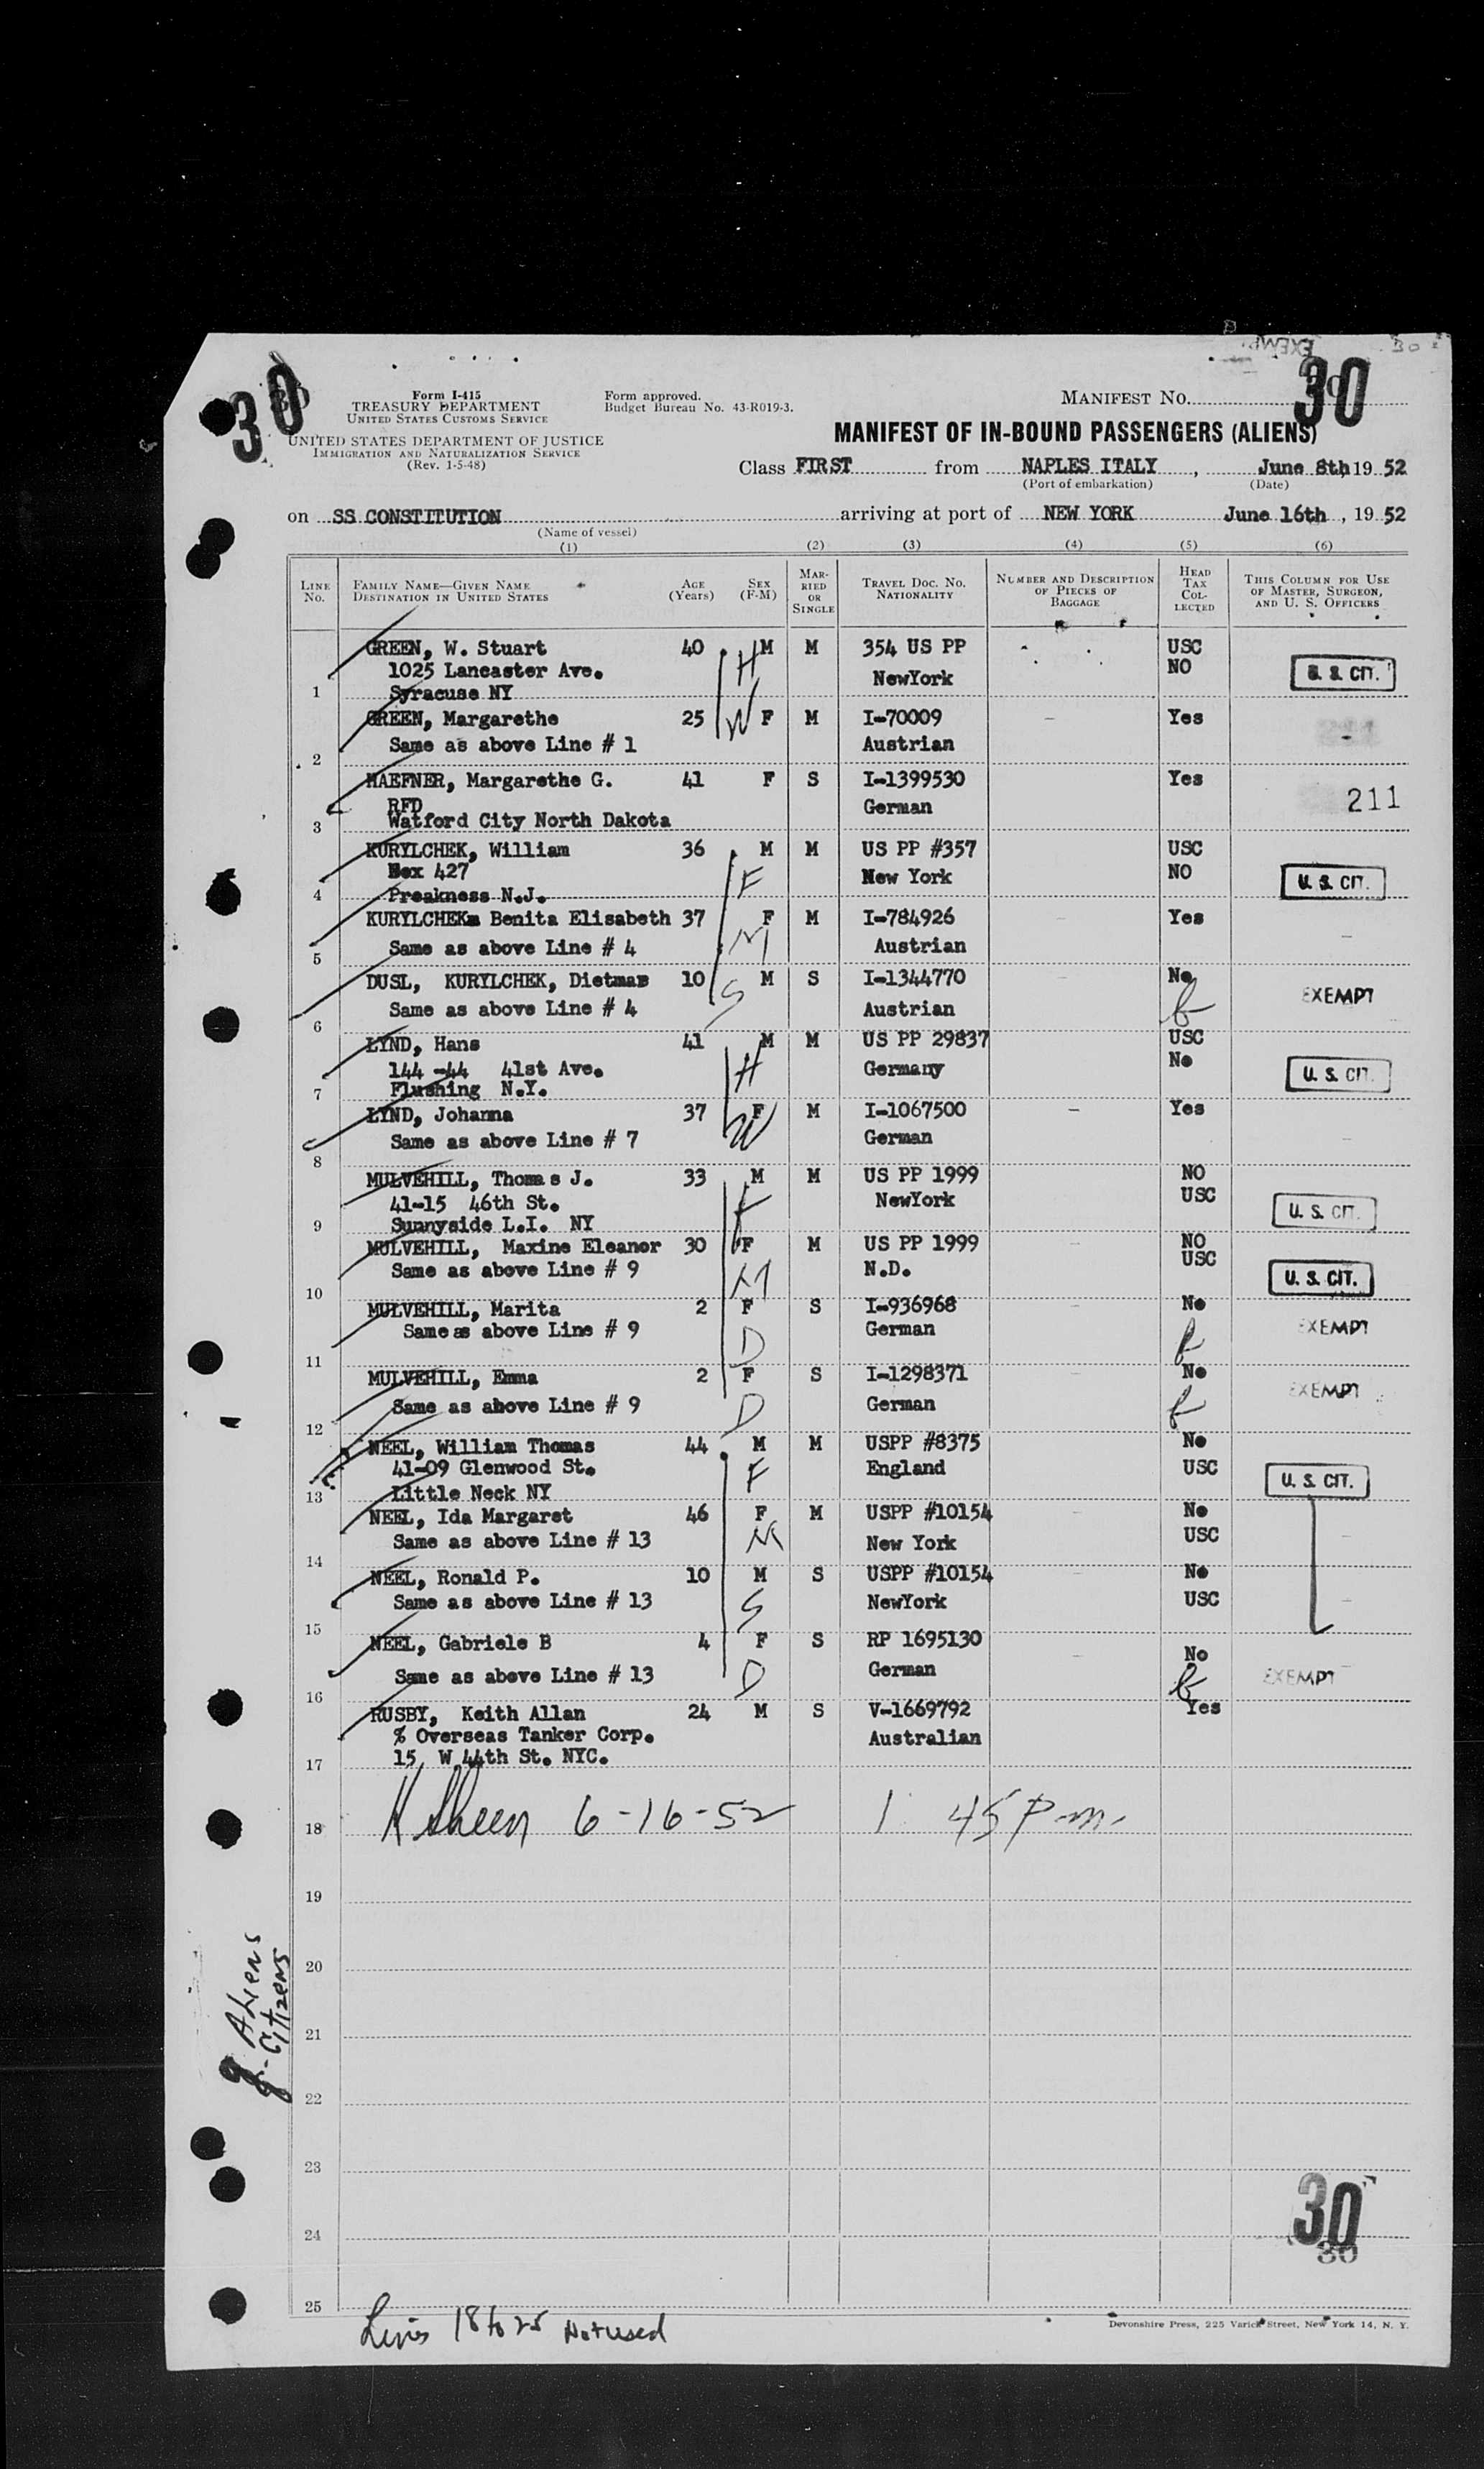 30
30
Form I-415
TREASURY DEPARTMENT
UNITED STATES CUSTOMS SERVICE
UNITED STATES DEPARTMENT OF JUSTICE
IMMIGRATION AND NATURALIZATION SERVICE
(Rev. 1-5-48)
Form approved.
Budget Bureau No. 43-R019-3.
MANIFEST No. 30
MANIFEST OF IN-BOUND PASSENGERS (ALIENS)
Class FIRST from NAPLES ITALY , June 8th, 19 52
(Port of embarkation) (Date)
on SS CONSTITUTION arriving at port of NEW YORK June 16th , 19 52
(Name of vessel)
(1) (2) (3) (4) (5) (6)
LINE No. FAMILY NAME—GIVEN NAME DESTINATION IN UNITED STATES AGE (Years) SEX (F-M) MARRIED OR SINGLE TRAVEL DOC. NO. NATIONALITY NUMBER AND DESCRIPTION OF PIECES OF BAGGAGE HEAD TAX COLLECTED THIS COLUMN FOR USE OF MASTER, SURGEON, AND U. S. OFFICERS
GREEN, W. Stuart 40 H M M 354 US PP USC
1025 Lancaster Ave. NewYork NO U. S. CIT.
1 Syracuse NY
GREEN, Margarethe 25 W F M I-70009 Yes
Same as above Line # 1 Austrian
2
HAEFNER, Margarethe G. 41 F S I-1399530 Yes
RFD German 211
3 Watford City North Dakota
KURYLCHEK, William 36 M M US PP #357 USC
Box 427 F New York NO U. S. CIT.
4 Preakness N.J.
KURYLCHEK, Benita Elisabeth 37 F M I-784926 Yes
Same as above Line # 4 M Austrian
5
DUSL, KURYLCHEK, Dietmar 10 M S I-1344770 No
Same as above Line # 4 S Austrian EXEMPT
6
LYND, Hans 41 M M US PP 29837 USC
144 -44 41st Ave. H Germany No U. S. CIT.
7 Flushing N.Y.
LYND, Johanna 37 F M I-1067500 Yes
Same as above Line # 7 W German
8
MULVEHILL, Thomas J. 33 M M US PP 1999 NO
41-15 46th St. F NewYork USC U. S. CIT.
9 Sunnyside L.I. NY
MULVEHILL, Maxine Eleanor 30 F M US PP 1999 NO
Same as above Line # 9 M N.D. USC U. S. CIT.
10
MULVEHILL, Marita 2 F S I-936968 No
Same as above Line # 9 D German EXEMPT
11
MULVEHILL, Emma 2 F S I-1298371 No
Same as above Line # 9 D German EXEMPT
12
NEEL, William Thomas 44 M M USPP #8375 No
41-09 Glenwood St. F England USC U. S. CIT.
13 Little Neck NY
NEEL, Ida Margaret 46 F M USPP #10154 No
Same as above Line # 13 M New York USC
14
NEEL, Ronald P. 10 M S USPP #10154 No
Same as above Line # 13 S NewYork USC
15
NEEL, Gabriele B 4 F S RP 1695130 No
Same as above Line # 13 D German EXEMPT
16
RUSBY, Keith Allan 24 M S V-1669792 Yes
% Overseas Tanker Corp. Australian
17 15 W 44th St. NYC.
18 6-16-52 1 45 p.m.
19
20
21
22
23
24
25
Aliens
Citizens
30
30
Lines 18 to 25 Not used
Devonshire Press, 225 Varick Street, New York 14, N. Y.